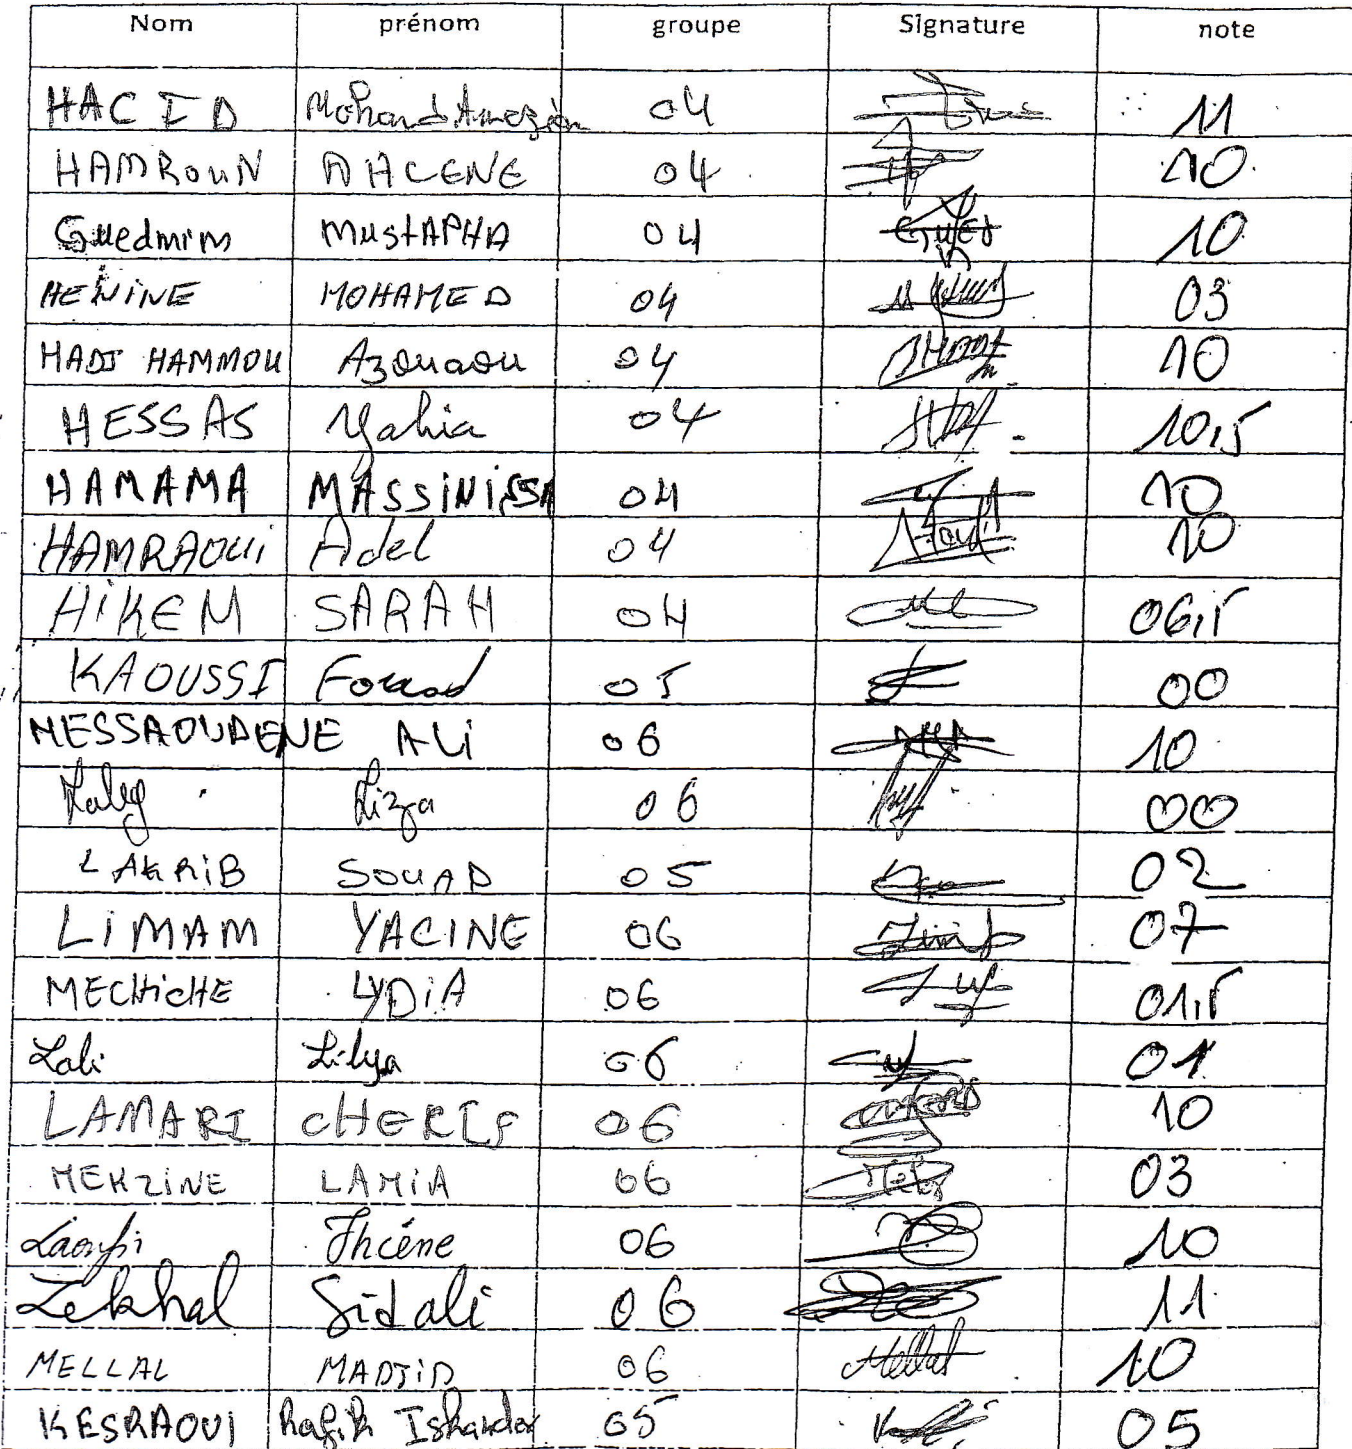 Nom prénom groupe Signature note
HACID Mohand Amezian 04 11
HAMROUN AHCENE 04 10
Guedmim MustAPHA 04 10
HENINE MOHAMED 04 03
HADJ HAMMOU Azouaou 04 10
HESSAS Yahia 04 10,5
HAMAMA MASSiNiSSA 04 10
HAMRAOUi Adel 04 10
HiKEM SARAH 04 06,5
KAOUSSI Fouad 05 00
MESSAOUDENE ALi 06 10
Laleg Liza 06 00
LAKRiB SOUAD 05 02
LiMAM YACINE 06 07
MECHiCHE LYDiA 06 01,5
Lali Lilya 06 01
LAMARI CHERIF 06 10
MEKZiNE LAMiA 06 03
Laoufi Ihcéne 06 10
Lekhal Sidali 06 11
MELLAL MADJiD 06 Mellal 10
KESRAOUI Rafik Iskander 05 05